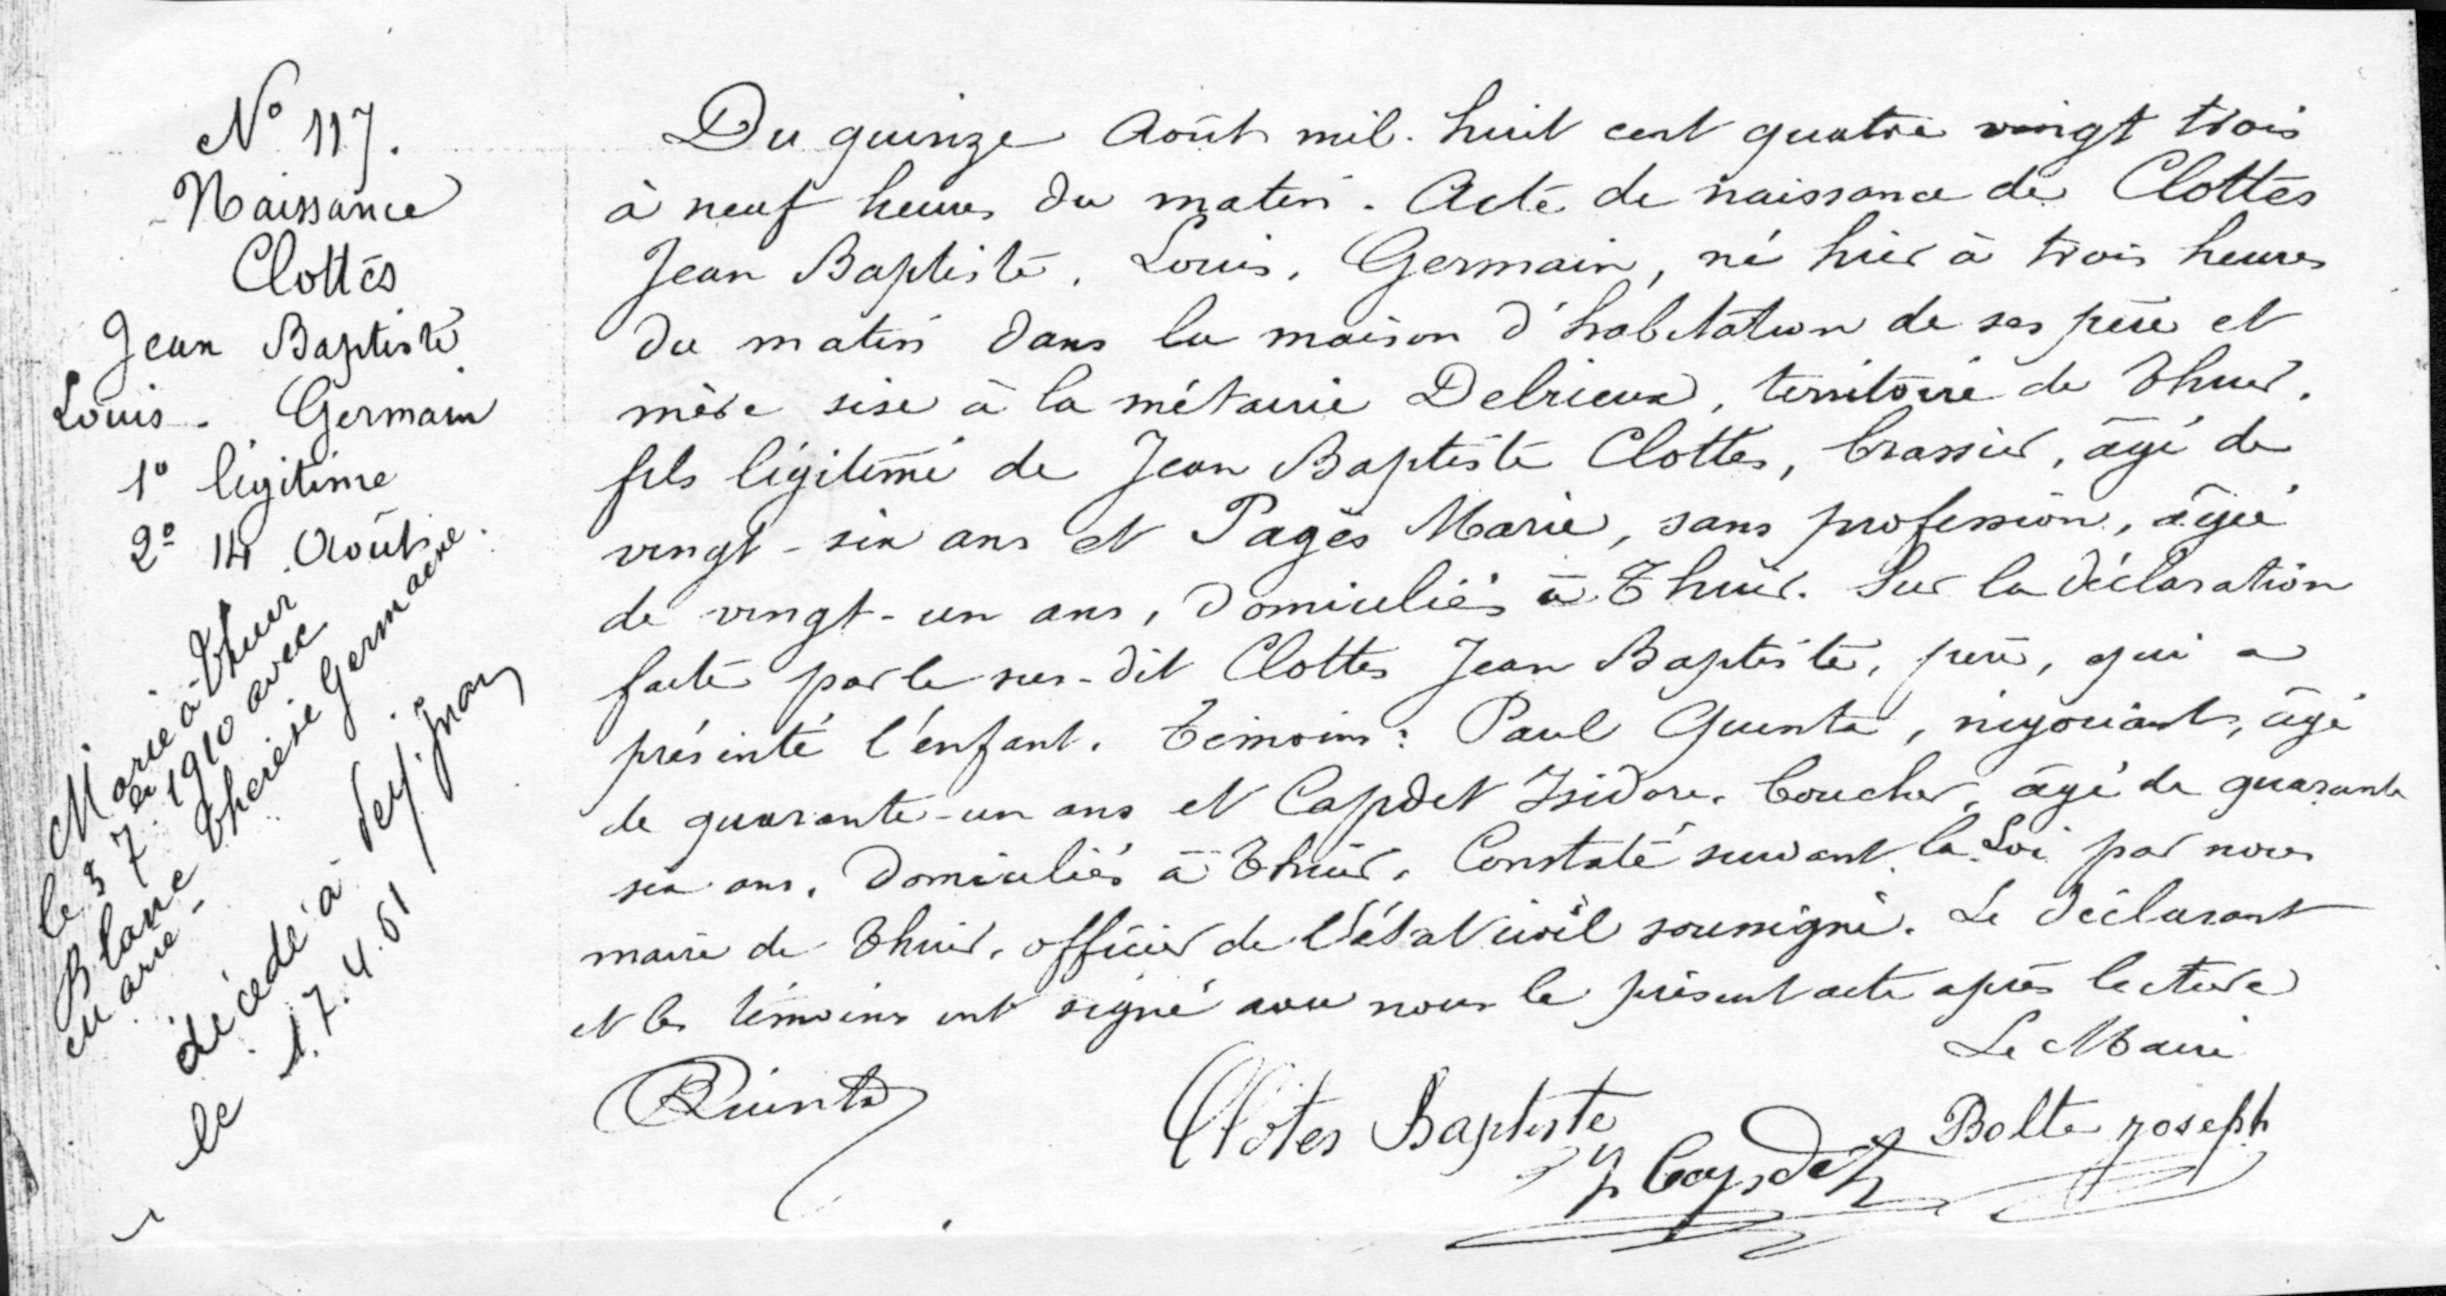 N° 117.
Naissance
Clottes
Jean Baptiste
Louis. Germain
1° légitime
2° 14 Août
Marié à Thuir
le 3 7 1910 avec
Blanc Thérèse Germaine
Marie
décédé à
le 17.4.61
Du quinze Août mil. huit cent quatre vingt trois
à neuf heures du matin. Acte de naissance de Clottes
Jean Baptiste, Louis, Germain, né hier à trois heures
du matin dans la maison d'habitation de ses père et
mère sise à la métairie Delrieux, territoire de Thuir,
fils légitime de Jean Baptiste Clottes, brassier, âgé de
vingt-six ans et Pagès Marie, sans profession, âgée
de vingt-un ans, domiciliés à Thuir. Sur la déclaration
faite par le sus-dit Clottes Jean Baptiste, père, qui a
présenté l'enfant. Témoins: Paul Quinta, négociant, âgé
de quarante-un ans et Capdet Isidore, boucher, âgé de quarante
six ans, domiciliés à Thuir. Constaté suivant la Loi par nous
maire de Thuir, officier de l'état civil soussigné. Le déclarant
et les témoins ont signé avec nous le présent acte après lecture
Le Maire
Quinta
Clotes Baptiste
Y Capdet
Bolte joseph